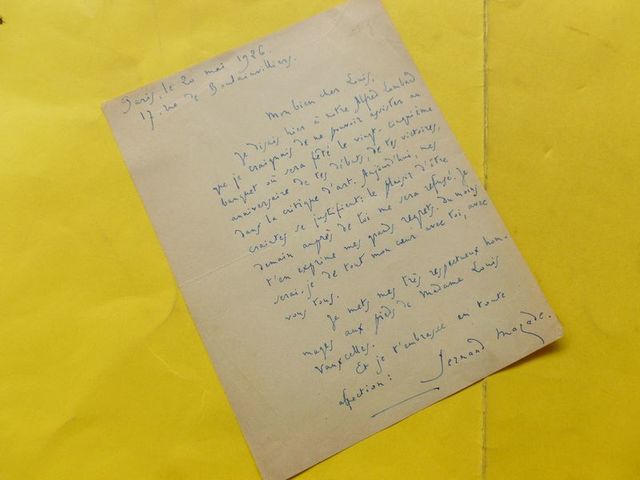 Paris, le 20 mai 1926.
17, rue de Boulainvilliers.
Mon bien cher Louis,
Je disais hier à notre Alfred Lombard
que je craignais de ne pouvoir assister au
banquet où sera fêté le vingt-cinquième
anniversaire de tes débuts, de tes victoires,
dans la critique d'art. Aujourd'hui, mes
craintes se justifient: le plaisir d'être
demain auprès de toi me sera refusé. Je
t'en exprime mes grands regrets. Du moins
serai-je de tout mon cœur avec toi, avec
vous tous.
Je mets mes très respectueux hom-
mages aux pieds de Madame Louis
Vauxcelles.
Et je t'embrasse en toute
affection:
Fernand Mazade.